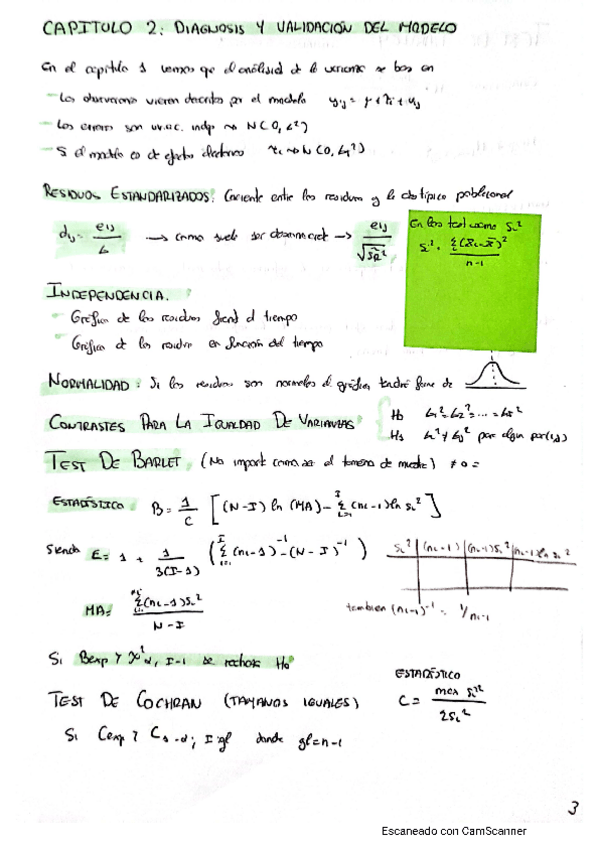 CAPITULO 2: DIAGNOSIS Y VALIDACIÓN DEL MODELO
En el capitulo 1 vemos que el análisis de la varianza se basa en
- Las observaciones vienen descritas por el modelo yij = μ + τi + uij
- Los errores son v.a.c. indp ~> N(0, σ²)
- Si el modelo es de efectos aleatorios τi ~> N(0, στ²)
RESIDUOS ESTANDARIZADOS: Cociente entre los residuos y la dstípica poblacional
dij = eij / σ → como suele ser desconocida → eij / √ŝR²
En los test usamos si²
si² = Σ(xi - x̄)² / n-1
INDEPENDENCIA.
- Gráfica de los residuos frente al tiempo
- Gráfica de los residuos en función del tiempo
NORMALIDAD: Si los residuos son normales el gráfico tendrá forma de
CONTRASTES PARA LA IGUALDAD DE VARIANZAS
H0 σ1² = σ2² = ... = σI²
H1 σi² ≠ σj² por algun par (i,j)
TEST DE BARLET, (No importa como sea el tamaño de muestra) ≠ o =
ESTADÍSTICO B = 1/C [(N-I) ln (MA) - Σ (ni-1) ln si²]
Siendo C = 1 + 1/3(I-1) (Σ (ni-1)⁻¹ - (N-I)⁻¹)
si² | (ni-1) | (ni-1)si² | (ni-1) ln si²
MA = Σ(ni-1)si² / N-I
tambien (ni-1)⁻¹ = 1/ni-1
Si Bexp > χ²α, I-1 se rechaza H0
TEST DE COCHRAN (TAMAÑOS IGUALES)
ESTADÍSTICO
C = max si² / Σsi²
Si Cexp > C1-α; I; gl donde gl = n-1
3
Escaneado con CamScanner